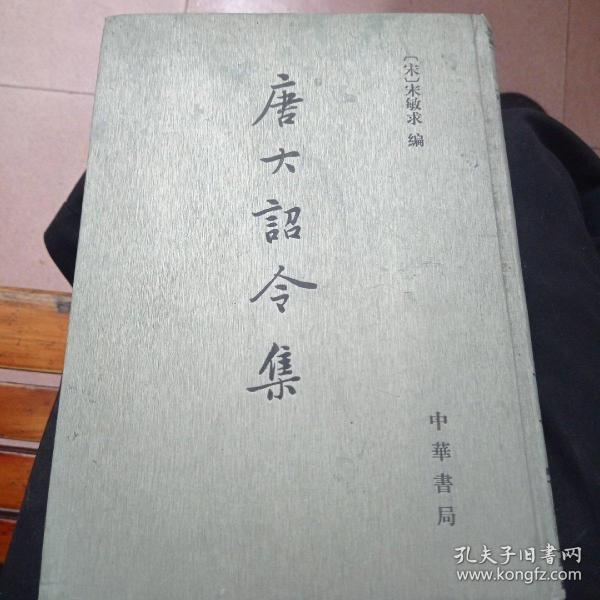 〔宋〕宋敏求 编
唐大詔令集
中華書局
孔夫子旧书网
www.kongfz.com